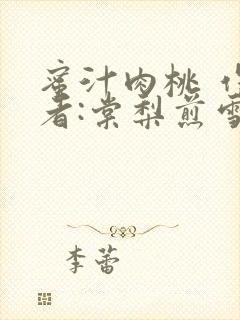 蜜汁肉桃 作
者:棠梨煎雪
李蕾